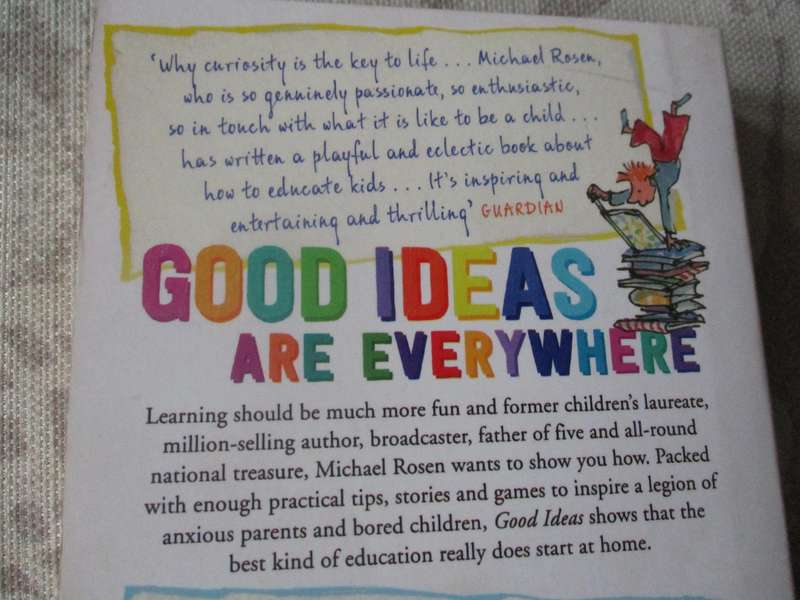 'Why curiosity is the key to life . . . Michael Rosen,
who is so genuinely passionate, so enthusiastic,
so in touch with what it is like to be a child . . .
has written a playful and eclectic book about
how to educate kids . . . It's inspiring and
entertaining and thrilling' GUARDIAN
GOOD IDEAS
ARE EVERYWHERE
Learning should be much more fun and former children's laureate,
million-selling author, broadcaster, father of five and all-round
national treasure, Michael Rosen wants to show you how. Packed
with enough practical tips, stories and games to inspire a legion of
anxious parents and bored children, Good Ideas shows that the
best kind of education really does start at home.